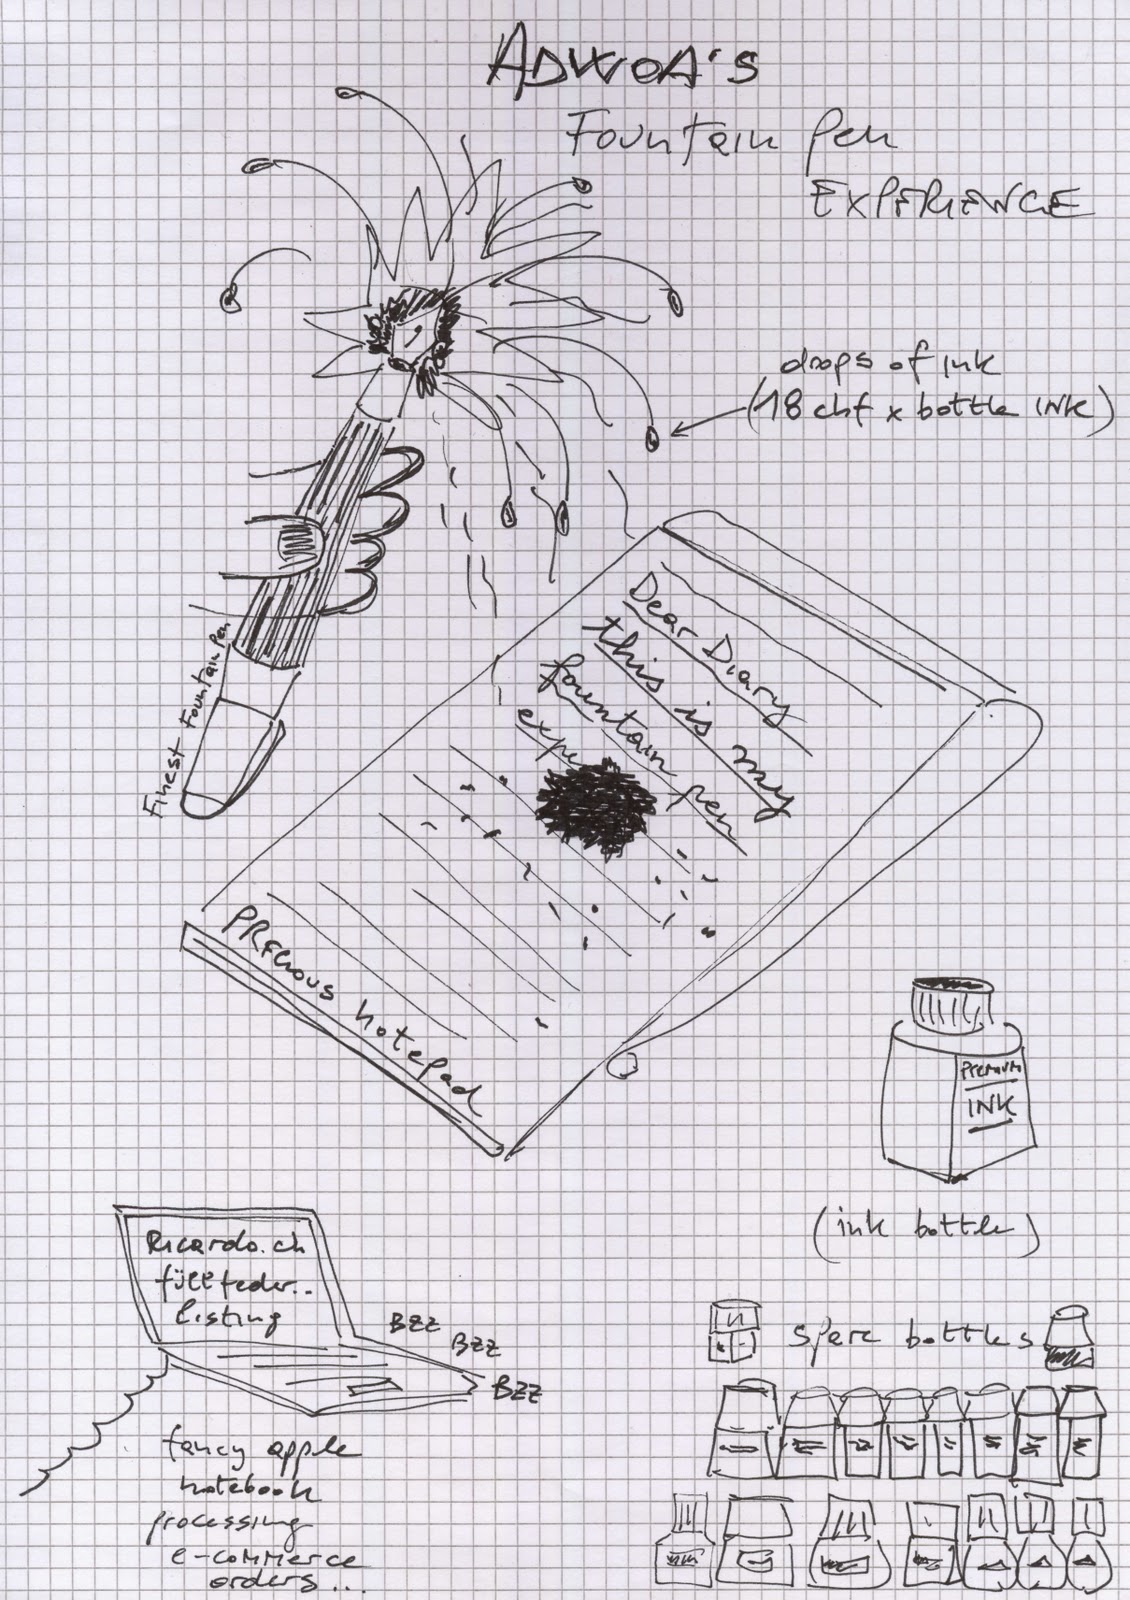 ADWOA'S
Fountain Pen
EXPERIENCE
drops of ink
(18 chf x bottle INK)
Finest Fountain Pen
Dear Diary
this is my
fountain pen
expe
PRECIOUS notepad
PREMIUM
INK
(ink bottle)
Ricardo.ch
füllfeder..
listing
BZZ
BZZ
BZZ
fancy apple
notebook
processing
e-commerce
orders...
spare bottles